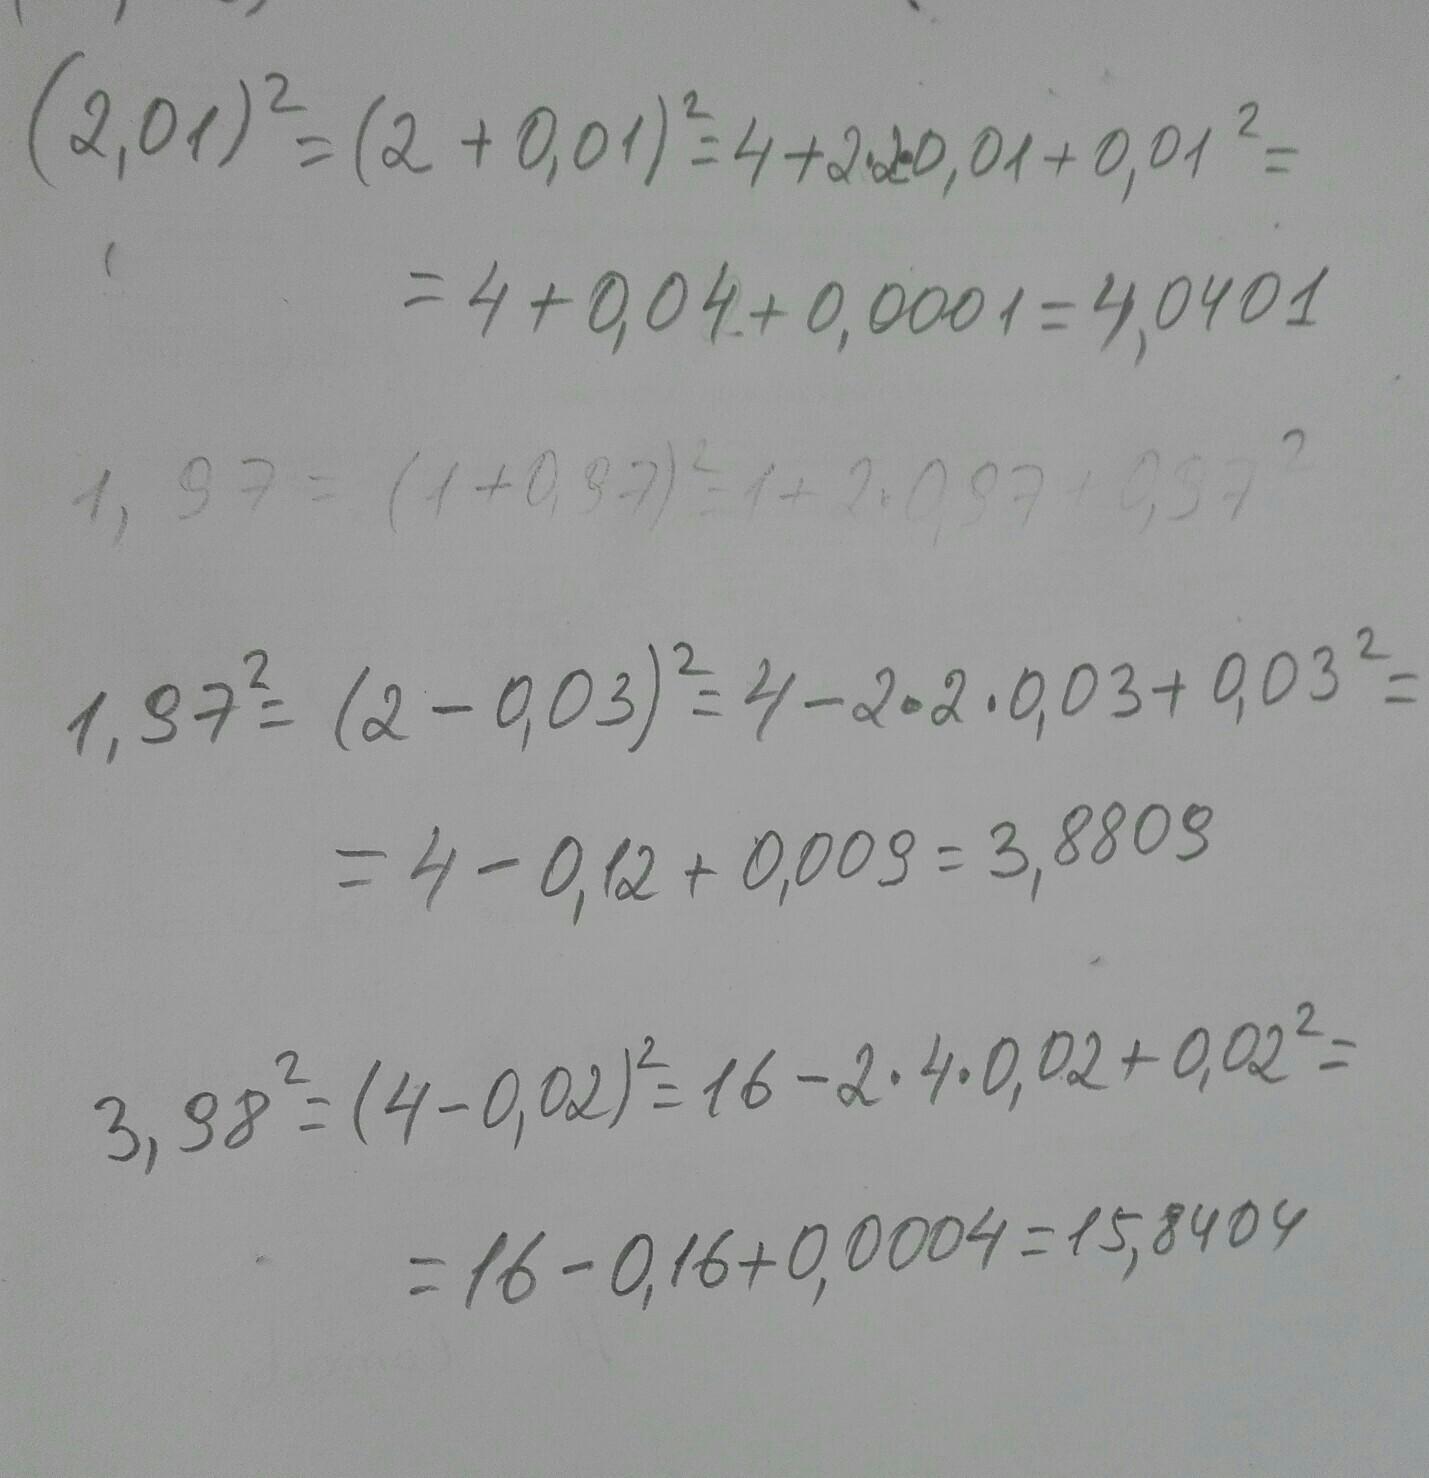 (2,01)² = (2 + 0,01)² = 4 + 2·2·0,01 + 0,01² =
= 4 + 0,04 + 0,0001 = 4,0401
1, 97 = (1 + 0,97)² = 1 + 2·0,97 + 0,97²
1,97² = (2 - 0,03)² = 4 - 2·2·0,03 + 0,03² =
= 4 - 0,12 + 0,009 = 3,8809
3,98² = (4 - 0,02)² = 16 - 2·4·0,02 + 0,02² =
= 16 - 0,16 + 0,0004 = 15,8404